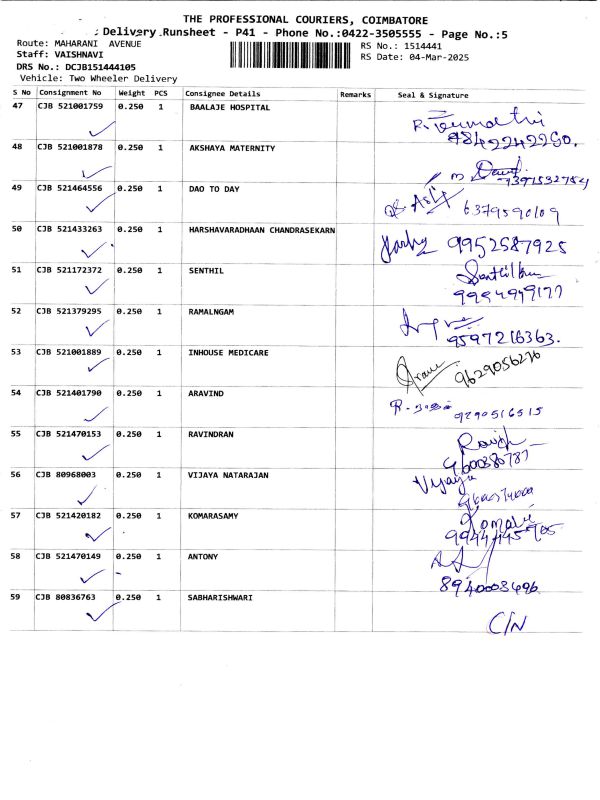 THE PROFESSIONAL COURIERS, COIMBATORE
Delivery Runsheet - P41 - Phone No.:0422-3505555 - Page No.:5
Route: MAHARANI AVENUE
RS No.: 1514441
Staff: VAISHNAVI
RS Date: 04-Mar-2025
DRS No.: DCJB151444105
Vehicle: Two Wheeler Delivery
S No Consignment No Weight PCS Consignee Details Remarks Seal & Signature
47 CJB 521001759 0.250 1 BAALAJE HOSPITAL
48 CJB 521001878 0.250 1 AKSHAYA MATERNITY
49 CJB 521464556 0.250 1 DAO TO DAY
6379590109
50 CJB 521433263 0.250 1 HARSHAVARADHAAN CHANDRASEKARN
9952587925
51 CJB 521172372 0.250 1 SENTHIL
52 CJB 521379295 0.250 1 RAMALNGAM
9597216363.
53 CJB 521001889 0.250 1 INHOUSE MEDICARE
9629056276
54 CJB 521401790 0.250 1 ARAVIND
9290516515
55 CJB 521470153 0.250 1 RAVINDRAN
9600380787
56 CJB 80968003 0.250 1 VIJAYA NATARAJAN
Vijaya
57 CJB 521420182 0.250 1 KOMARASAMY
58 CJB 521470149 0.250 1 ANTONY
8940003696
59 CJB 80836763 0.250 1 SABHARISHWARI
C/N